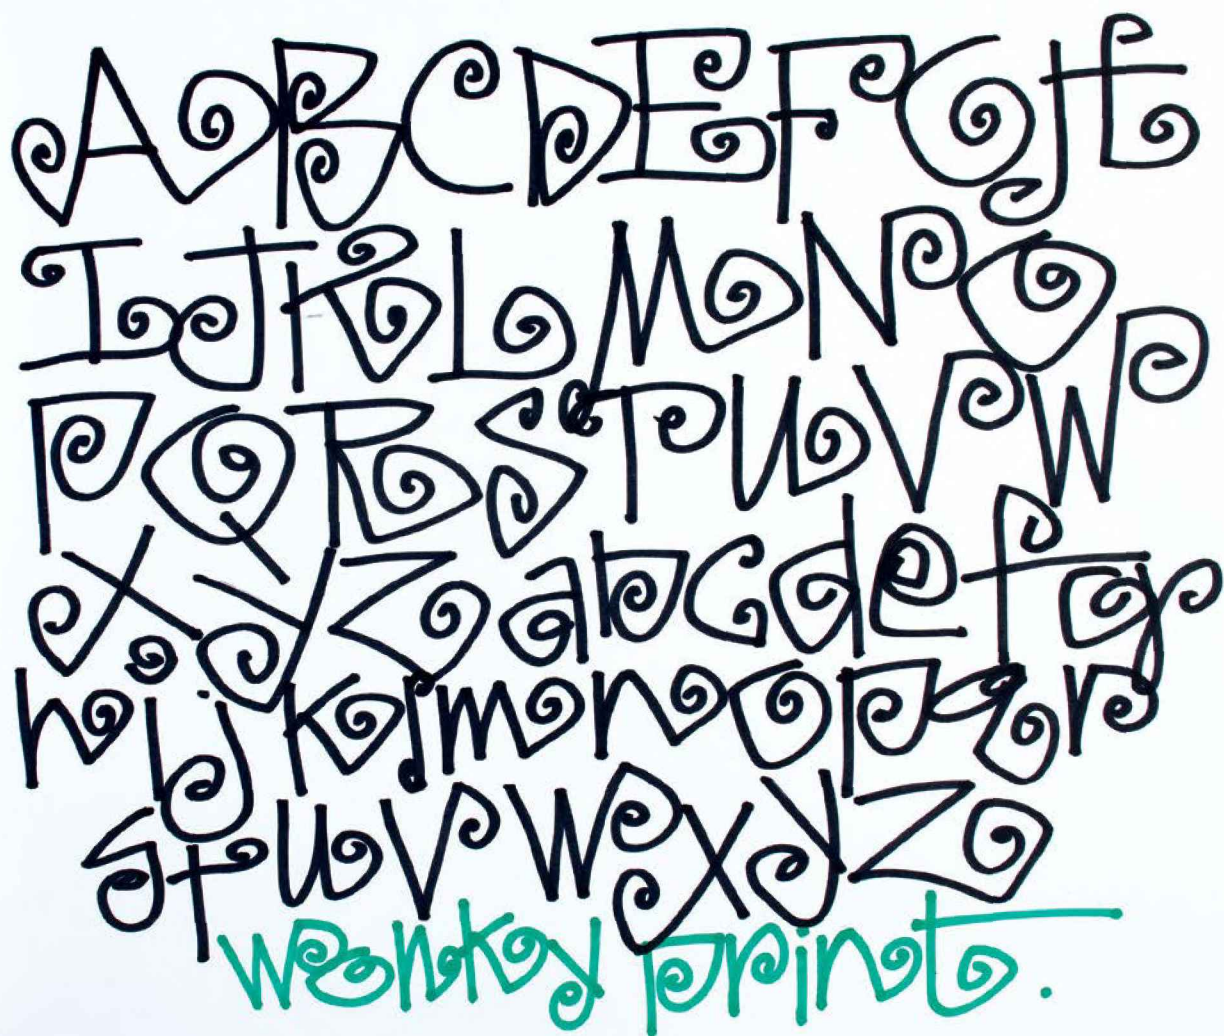 ABCDEFGH
IJKLMNO
PQRSTUVW
XYZabcdefg
hijklmnopqr
stuvwxyz
wonky print.